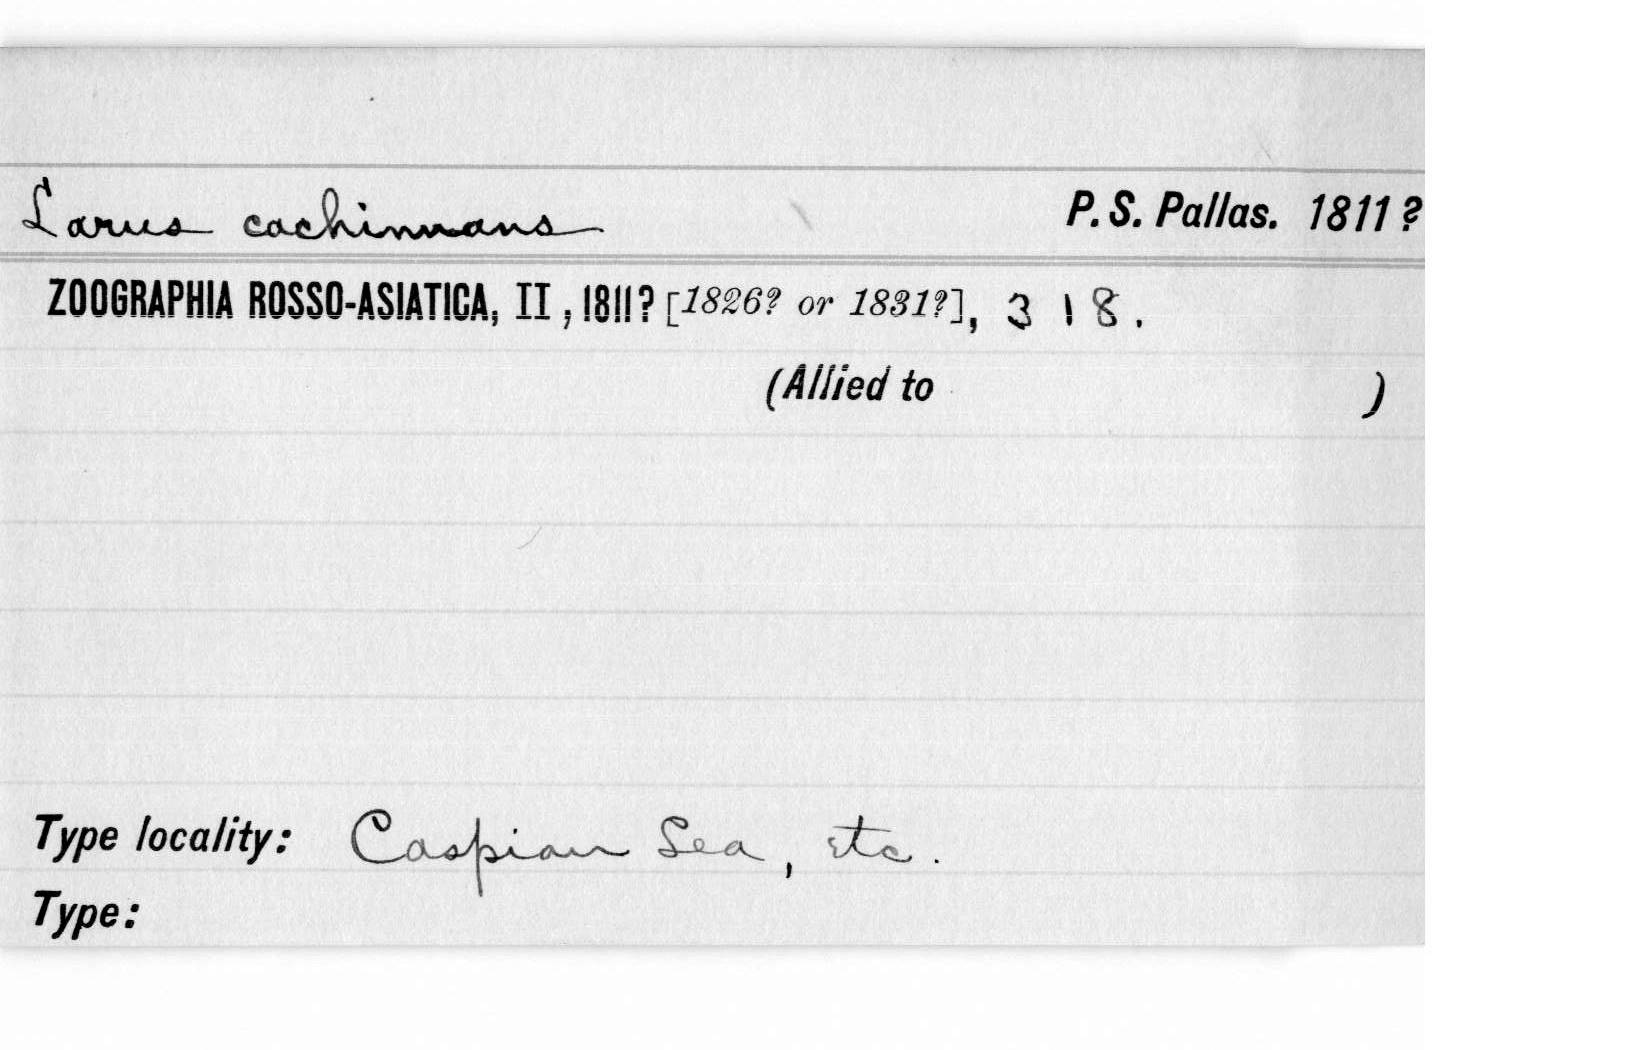 Larus cachinnans P. S. Pallas. 1811?
ZOOGRAPHIA ROSSO-ASIATICA, II, 1811? [1826? or 1831?], 318.
(Allied to )
Type locality: Caspian Sea, etc.
Type: